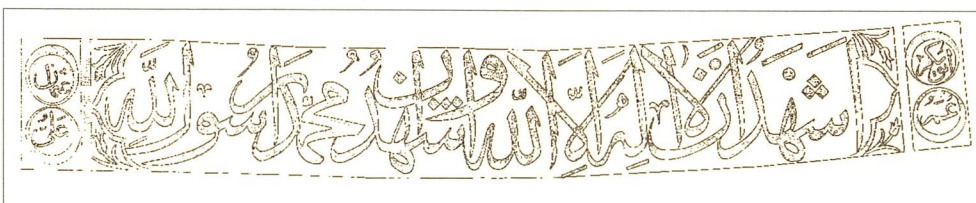 ابو بكر
عمر
اشهد ان لا اله الا الله و اشهد ان محمدا رسول الله
عثمان
على